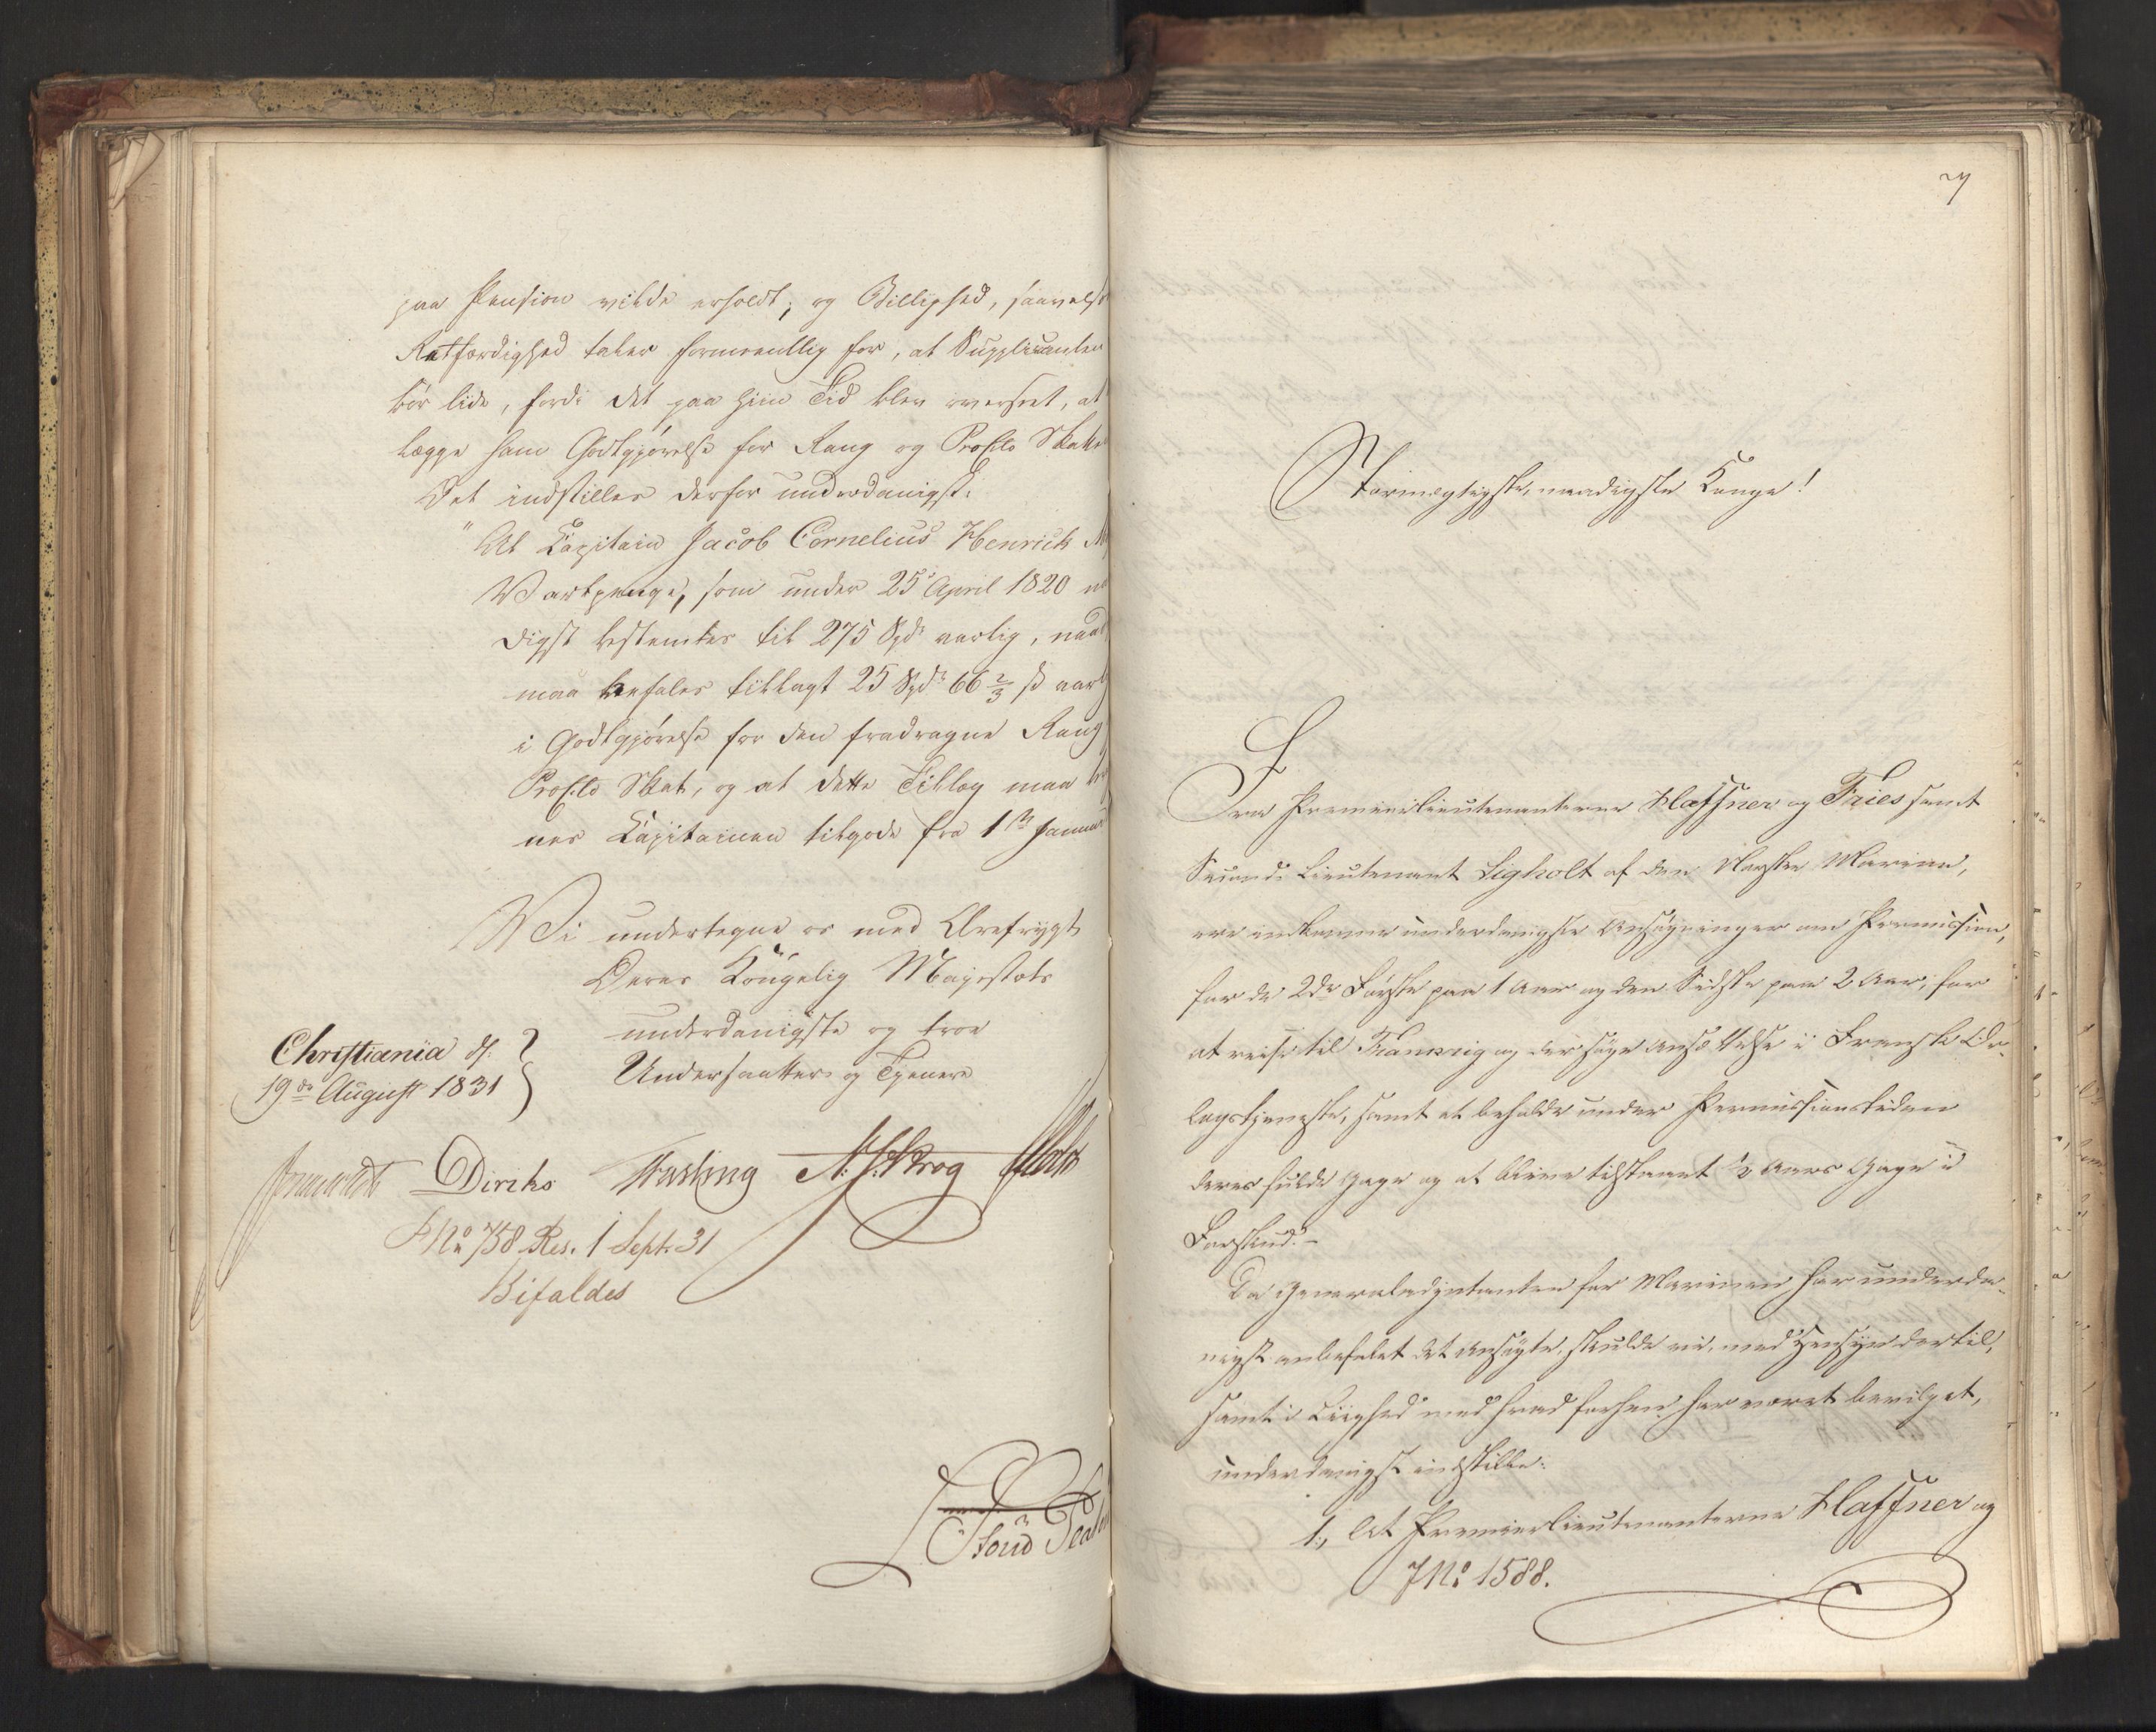 paa Pension vilde erholdt; og Billighed, saavelso
Retfærdighed taler formeentlig for, at Supplicanten
bør lide, fordi det paa hiin Tid blev overseet, at
lægge ham Godtgjørelse for Rang og Procento Skatte
Det indstilles derfor underdanigst:
"At Capitain Jacob Cornelius Henrich
Vartpenge, som under 25de April 1820 na
digst bestemtes til 275 Spd aarlig, naad
maa befales tillagt 25 Spd 66 2/3 ß aarl
i Godtgjørelse for den fradragne Rang
Procento Skat, og at dette Tillæg maa
nes Capitainen tilgode fra 1ste Januar
Vi undertegne os med Ærefrygt
Deres Kongelig Majestæts
underdanigste og troe
Undersaatter og Tjenere
Christiania d.
19de August 1831
Diriks Fasting
No 758 Res. 1 Sept. 31
Bifaldes
27
Stormægtigste, naadigste Konge!
Fra Premierlieutenanterne Haffner og Fries samt
Second Lieutenant Ligholt af den Norske Marine,
ere indkomne underdanigste Ansøgninger om Permission,
for de 2de Første paa 1 Aar og den Sidste paa 2 Aar, for
at reise til Frankrig og der søge Ansættelse i Fransk Or-
logstjeneste, samt at beholde under Permissionstiden
deres fulde Gage og at blive tilstaaet ½ Aars Gage i
Forskud.-
Da Generaladjutanten for Marinen har underda-
nigst anbefalet det Ansøgte, skulde vi, med Hensyn dertil,
samt i Liighed med hvad forhen har været bevilget,
underdanigst indstille:
1, At Premierlieutenanterne Haffner og
JNo 1588.